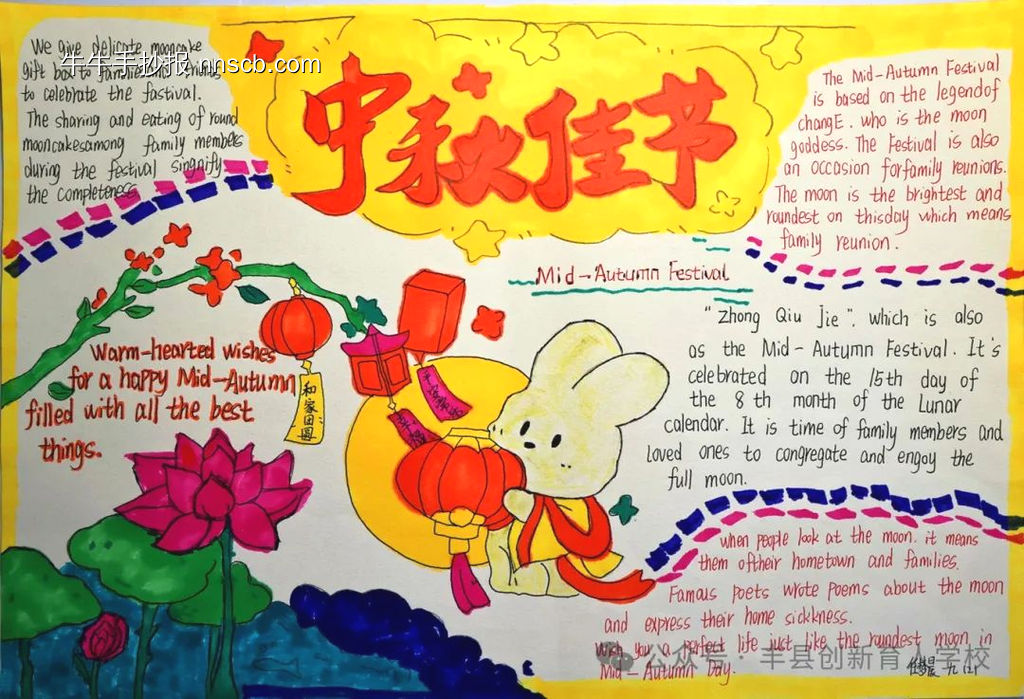 We give delicate mooncake
gift box to families and friends
to celebrate the fastival.
The sharing and eating of round
mooncakesamong family members
during the festival signify
the completeness
牛牛手抄报 nnscb.com
中秋佳节
The Mid-Autumn Festival
is based on the legendof
changE. who is the moon
goddess. The Festival is also
an occasion forfamily reunions.
The moon is the brightest and
roundest on thisday which means
family reunion.
Mid-Autumn Festival
"Zhong Qiu Jie". which is also
as the Mid-Autumn Festival. It's
celebrated on the 15th day of
the 8th month of the Lunar
calendar. It is time of family members and
loved ones to congregate and engoy the
full moon.
Warm-hearted wishes
for a happy Mid-Autumn
filled with all the best
things.
和家团圆
when people look at the moon. it means
them oftheir hometown and families.
Famous poets wrote poems about the moon
and express their home sickness.
Wish you a perfect life just like the roundest moon in
Mid-Autumn Day.
公众号·丰县创新育人学校